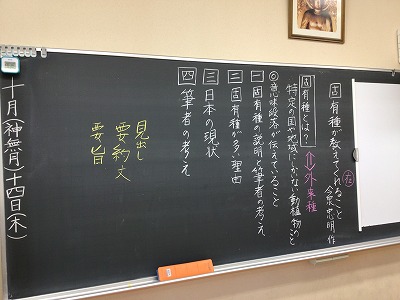 固有種が教えてくれること
今泉忠明 作
固有種とは?⇔外来種
特定の国や地域にしかない動植物のこと
◎意味段落が伝えていること
一 固有種の説明と筆者の考え
二 固有種が多い理由
三 日本の現状
四 筆者の考え
見出し
要約文
要旨
十月(神無月)十四日(木)